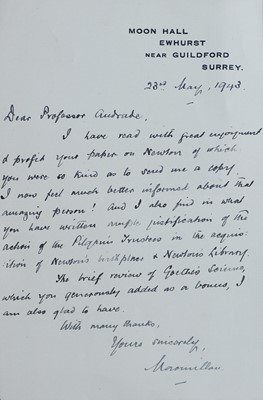 MOON HALL
EWHURST
NEAR GUILDFORD
SURREY.
23rd May, 1943.
Dear Professor Andrade,
I have read with great enjoyment
& profit your paper on Newton of which
you were so kind as to send me a copy.
I now feel much better informed about that
amazing person! And I also find in what
you have written ample justification of the
action of the Pilgrim Trustees in the acquis-
ition of Newton's birthplace & Newton's Library.
The brief review of Goethe's Science,
which you generously added as a bonus, I
am also glad to have.
With many thanks,
Yours sincerely,
Macmillan.